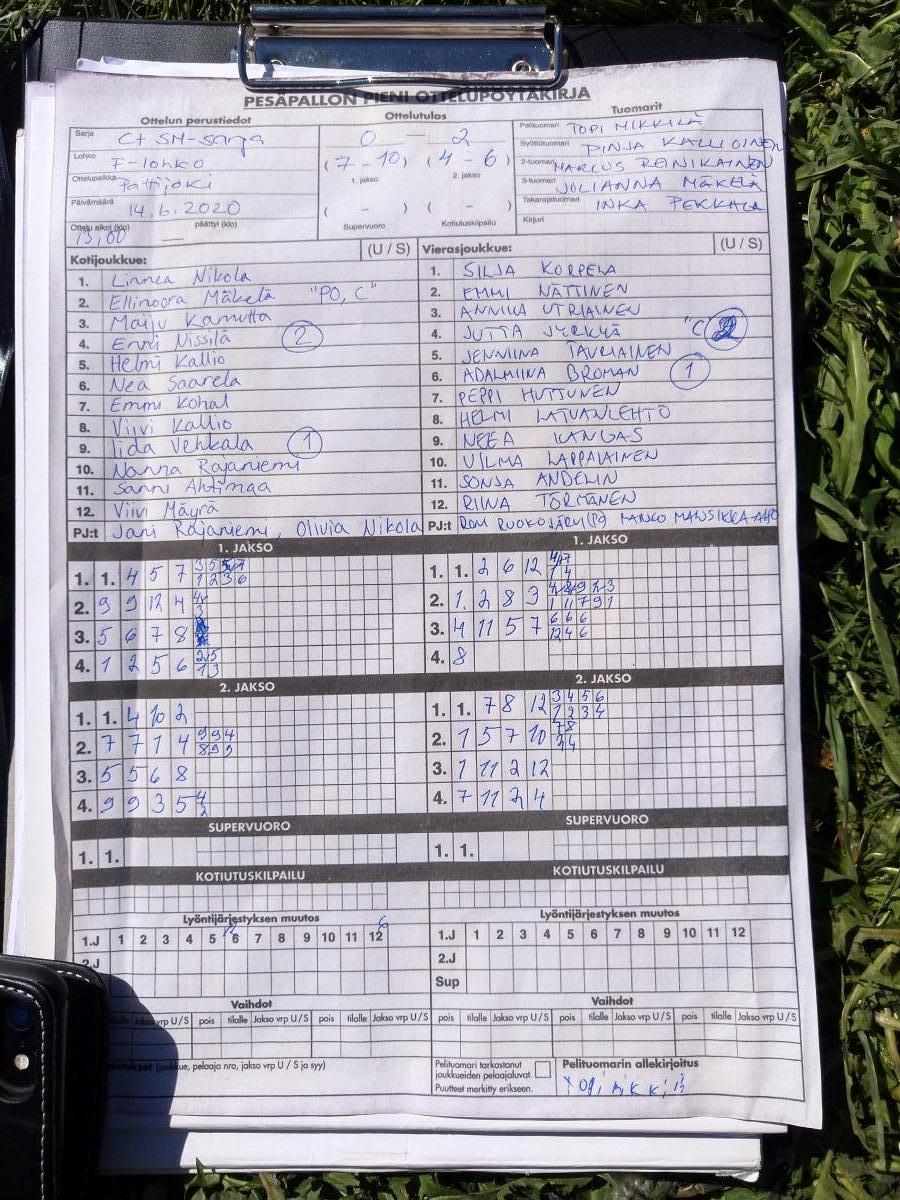 PESÄPALLON PIENI OTTELUPÖYTÄKIRJA
Ottelun perustiedot
Sarja C+ SM-sarja
Lohko F-lohko
Ottelupaikka Pattijoki
Päivämäärä 14.6.2020
Ottelu alkoi (klo) 13,00 — päättyi (klo)
Ottelutulos
0 — 2
(7 - 10) (4 - 6)
1. jakso 2. jakso
( - ) ( - )
Supervuoro Kotiutuskilpailu
Tuomarit
Pelituomari TOPI MIKKILÄ
Syöttötuomari PINJA KALLIOINEN
2-tuomari MARCUS REINIKAINEN
3-tuomari JULIANNA MÄKELÄ
Takarajatuomari INKA PEKKALA
Kirjuri
Kotijoukkue: (U / S)
1. Linnea Nikola
2. Ellinoora Mäkelä "PO, C"
3. Maiju Kamutta
4. Enni Nissilä 2
5. Helmi Kallio
6. Nea Saarela
7. Emmi Kohal
8. Viivi Kallio
9. Iida Vehkala 1
10. Nanna Rajaniemi
11. Sanni Ahtimaa
12. Viivi Mäyrä
PJ:t Jani Rajaniemi, Olivia Nikola
Vierasjoukkue: (U / S)
1. SILJA KORPELA
2. EMMI NÄTTINEN
3. ANNIKA UTRIAINEN
4. JUTTA JYRKYÄ "C" 2
5. JENNIINA TAURIAINEN
6. ADALMIINA BROMAN 1
7. PEPPI HUTTUNEN
8. HELMI LATVANLEHTO
9. NEEA KANGAS
10. VILMA LAPPALAINEN
11. SONJA ANDELIN
12. RIINA TORMÄNEN
PJ:t MANSIKKA-AHO
1. JAKSO
1. 1. 4 5 7
2. 9 9 12 4
3. 5 6 7 8
4. 1 2 5 6
2. JAKSO
1. 1. 4 10 2
2. 7 7 1 4 9 9 4
8 9 9
3. 5 5 6 8
4. 9 9 3 5 4
2
SUPERVUORO
1. 1.
KOTIUTUSKILPAILU
1. JAKSO
1. 1. 2 6 12
2. 1. 2 8 3
3. 4 11 5 7 6 6 6
12 4 6
4. 8
2. JAKSO
1. 1. 7 8 12 3 4 5 6
1 2 3 4
2. 1 5 7 10 7 8
3 4
3. 1 11 2 12
4. 7 11 2 4
SUPERVUORO
1. 1.
KOTIUTUSKILPAILU
Lyöntijärjestyksen muutos
1.J 1 2 3 4 5 6 7 8 9 10 11 12
2.J
Lyöntijärjestyksen muutos
1.J 1 2 3 4 5 6 7 8 9 10 11 12
2.J
Sup
Vaihdot
tilalle Jakso vrp U / S pois tilalle Jakso vrp U / S pois tilalle Jakso vrp U / S
Vaihdot
pois tilalle Jakso vrp U / S pois tilalle Jakso vrp U / S pois tilalle Jakso vrp U / S
(joukkue, pelaaja nro, jakso vrp U / S ja syy)
Pelituomari tarkastanut
joukkueiden pelaajaluvat.
Puutteet merkitty erikseen.
Pelituomarin allekirjoitus